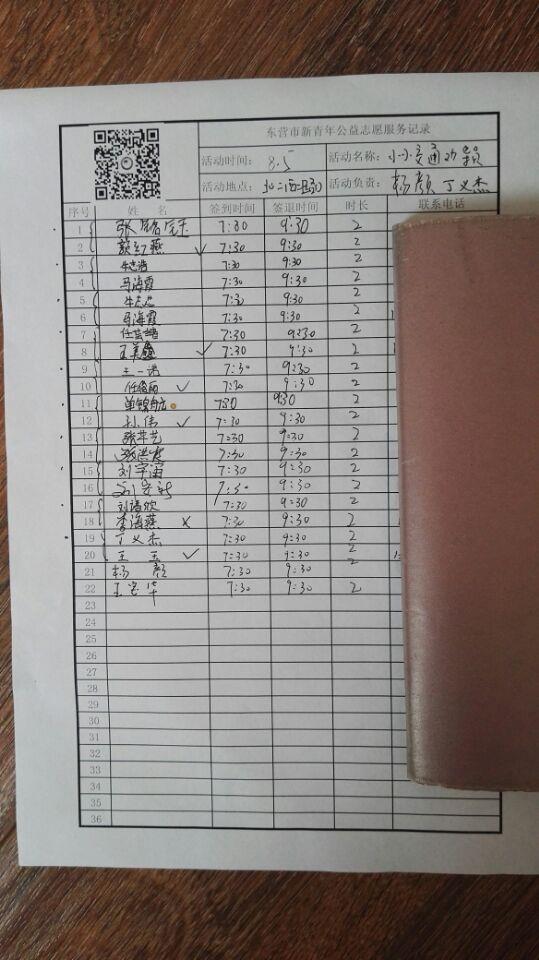 东营市新青年公益志愿服务记录
活动时间： 8.5 活动名称：小小交通劝导员
活动地点： 活动负责：杨颜 丁义杰
序号 姓 名 签到时间 签退时间 时长 联系电话
1 张 7:30 9:30 2
2 颜红燕 7:30 9:30 2
3 7:30 9:30 2
4 马海霞 7:30 9:30 2
5 7:30 9:30 2
6 马海霞 7:30 9:30 2
7 7:30 9:30 2
8 王美鑫 7:30 9:30 2
9 王一诺 7:30 9:30 2
10 7:30 9:30 2
11 单 7:30 9:30 2
12 孙伟 7:30 9:30 2
13 7:30 9:30 2
14 7:30 9:30 2
15 刘宇宙 7:30 9:30 2
16 刘 7:30 9:30 2
17 刘诺欣 7:30 9:30 2
18 李海燕 7:30 9:30 2
19 丁义杰 7:30 9:30 2
20 王 7:30 9:30 2
21 杨 颜 7:30 9:30 2
22 王宝华 7:30 9:30 2
23
24
25
26
27
28
29
30
31
32
33
34
35
36